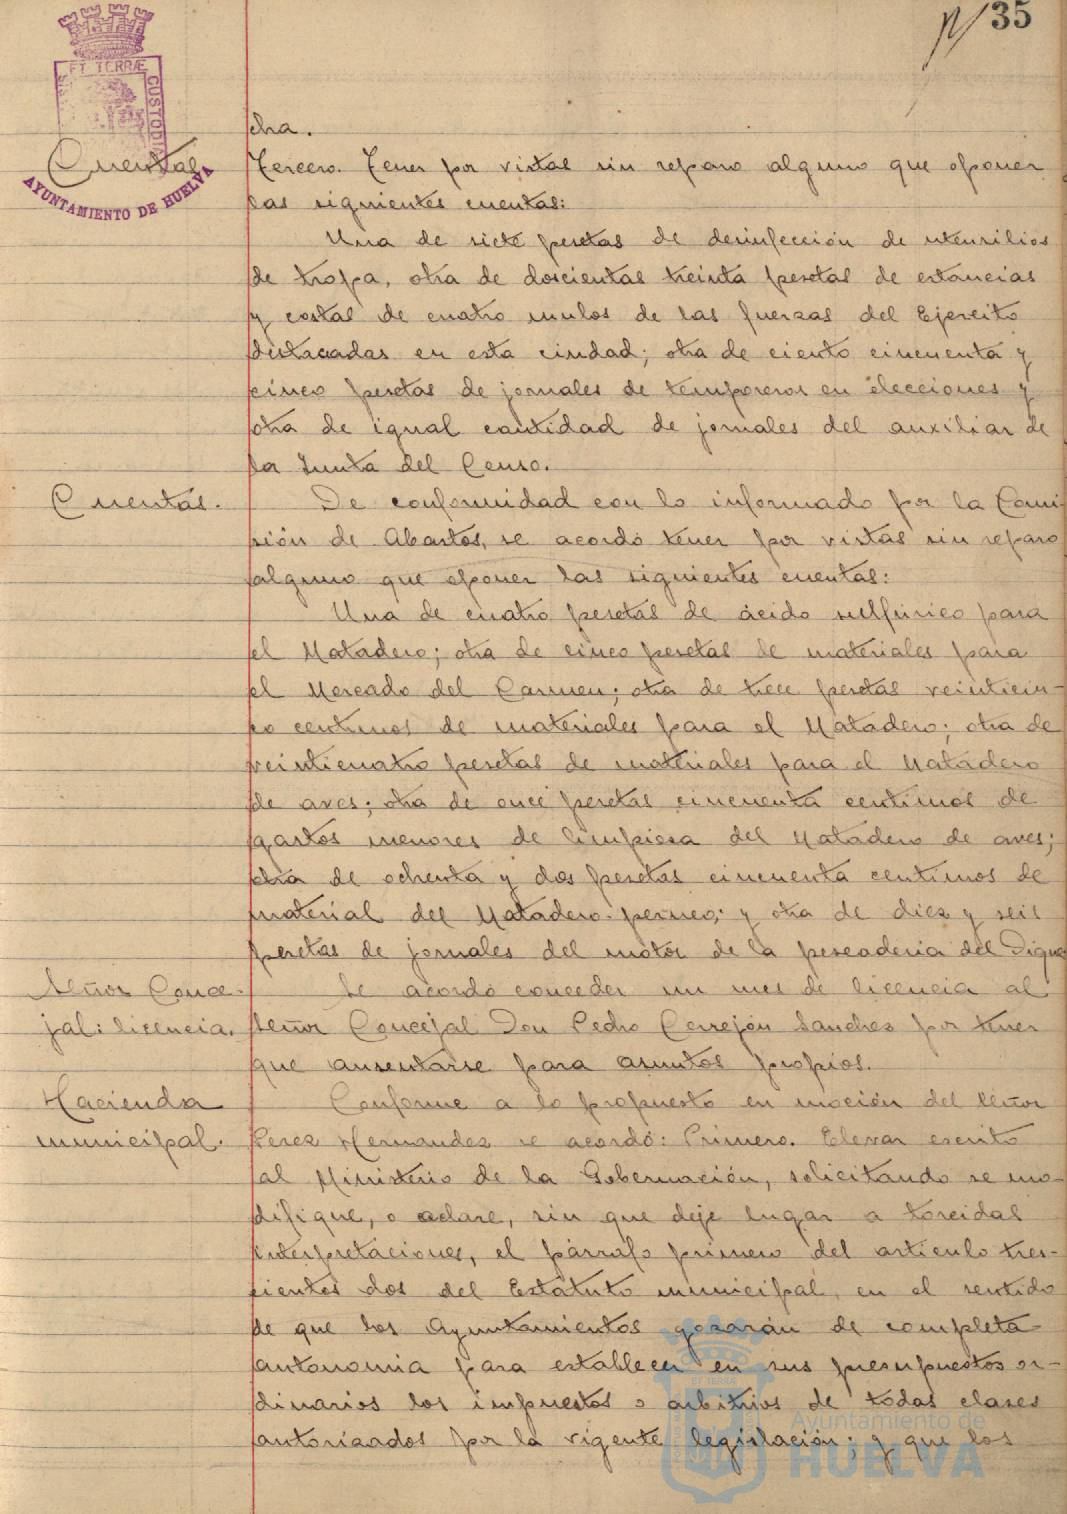 35
ET TERRÆ CUSTODIA
AYUNTAMIENTO DE HUELVA
cha.
Cuentas
Tercero. Tener por vistas sin reparo alguno que oponer
las siguientes cuentas:
Una de siete pesetas de desinfección de utensilios
de tropa, otra de doscientas treinta pesetas de estancias
y costas de cuatro mulos de las fuerzas del Ejercito
destacadas en esta ciudad; otra de ciento cincuenta y
cinco pesetas de jornales de temporeros en elecciones y
otra de igual cantidad de jornales del auxiliar de
la Junta del Censo.
Cuentas.
De conformidad con lo informado por la Comi-
sión de Abastos, se acordó tener por vistas sin reparo
alguno que oponer las siguientes cuentas:
Una de cuatro pesetas de ácido sulfúrico para
el Matadero; otra de cinco pesetas de materiales para
el Mercado del Carmen; otra de trece pesetas veinticin-
co centimos de materiales para el Matadero; otra de
veinticuatro pesetas de materiales para el Matadero
de aves; otra de once pesetas cincuenta centimos de
gastos menores de limpieza del Matadero de aves;
otra de ochenta y dos pesetas cincuenta centimos de
material del Matadero y otra de diez y seis
pesetas de jornales del motor de la pescaderia del Dique
Señor Conce-
jal: licencia.
Se acordó conceder un mes de licencia al
señor Concejal Don Pedro Cerrejón Sanchez por tener
que ausentarse para asuntos propios.
Hacienda
municipal.
Conforme a lo propuesto en moción del señor
Perez Hernandez se acordó: Primero. Elevar escrito
al Ministerio de la Gobernación, solicitando se mo-
difique, o aclare, sin que deje lugar a torcidas
interpretaciones, el párrafo primero del articulo tres-
cientos dos del Estatuto municipal, en el sentido
de que los Ayuntamientos gozarán de completa
autonomia para establecer en sus presupuestos or-
dinarios los impuestos o arbitrios de todas clases
autorizados por la vigente legislación; y que los
Ayuntamiento de
HUELVA